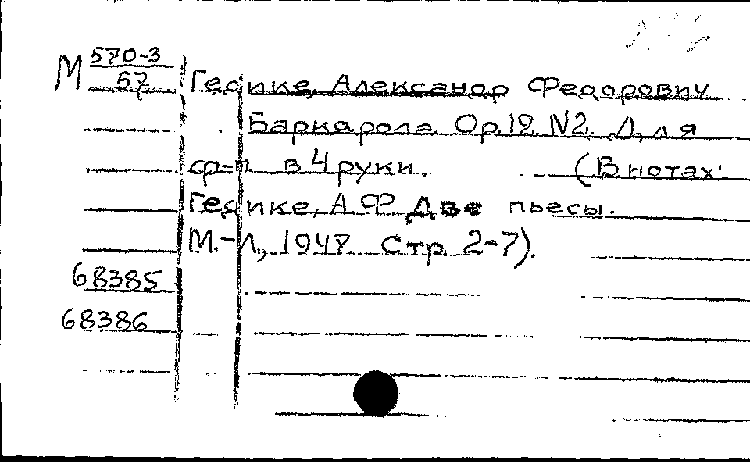 М 570-3
57
Гедике, Александр Федорович
Баркарола. Ор.12. N2. Для
ф-п в 4 руки. (В нотах:
Гедике, А.Ф. Две пьесы.
М.-Л., 1947. Стр. 2-7).
68385
68386